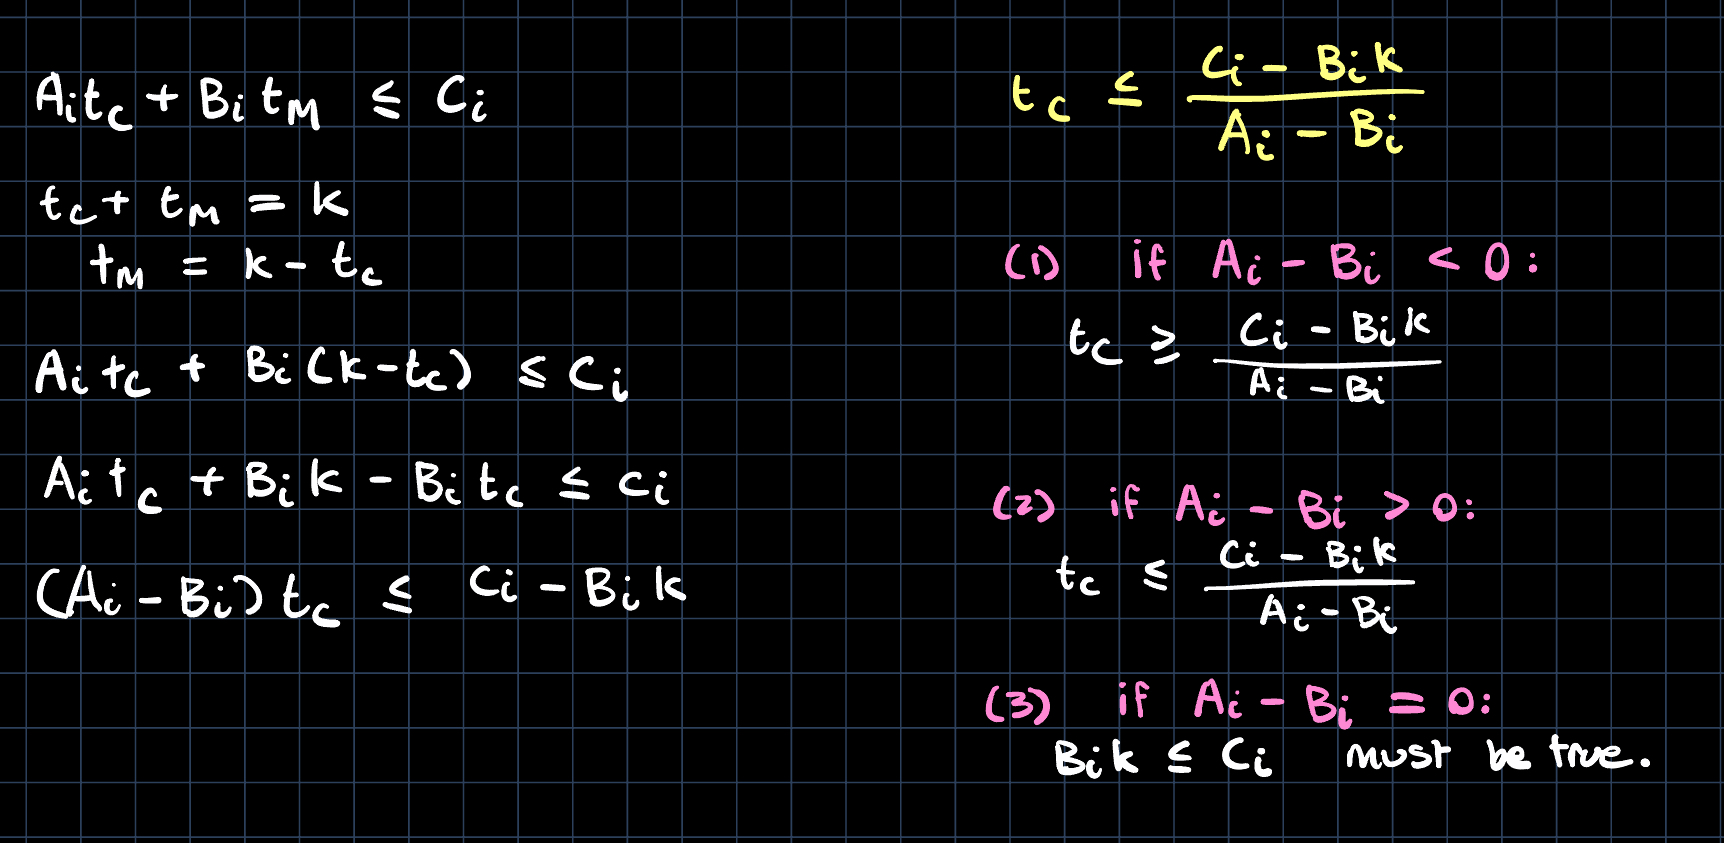 Aᵢt_C + Bᵢt_M ≤ Cᵢ
t_C + t_M = k
t_M = k - t_C
Aᵢt_C + Bᵢ(k-t_C) ≤ Cᵢ
Aᵢt_C + Bᵢk - Bᵢt_C ≤ Cᵢ
(Aᵢ - Bᵢ)t_C ≤ Cᵢ - Bᵢk
t_C ≤ (Cᵢ - Bᵢk)/(Aᵢ - Bᵢ)
(1) if Aᵢ - Bᵢ < 0:
t_C ≥ (Cᵢ - Bᵢk)/(Aᵢ - Bᵢ)
(2) if Aᵢ - Bᵢ > 0:
t_C ≤ (Cᵢ - Bᵢk)/(Aᵢ - Bᵢ)
(3) if Aᵢ - Bᵢ = 0:
Bᵢk ≤ Cᵢ must be true.